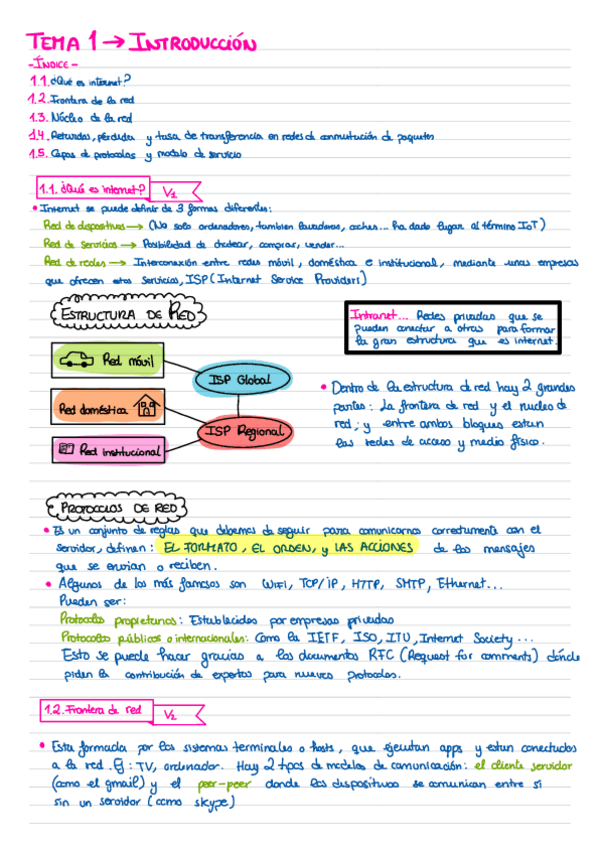 TEMA 1 → INTRODUCCIÓN
-ÍNDICE-
1.1. ¿Qué es internet?
1.2. Frontera de la red
1.3. Núcleo de la red
1.4. Retardos, pérdidas y tasa de transferencia en redes de conmutación de paquetes
1.5. Capas de protocolos y modelo de servicio
1.1. ¿Qué es internet? V1
• Internet se puede definir de 3 formas diferentes:
Red de dispositivos → (No solo ordenadores, tambien lavadoras, coches... ha dado lugar al término IoT)
Red de servicios → Posibilidad de chatear, comprar, vender...
Red de redes → Interconexión entre redes móvil, doméstica e institucional, mediante unas empresas
que ofrecen estos servicios, ISP (Internet Service Providers)
ESTRUCTURA DE RED
Intranet... Redes privadas que se
pueden conectar a otras para formar
la gran estructura que es internet.
Red móvil
ISP Global
Red doméstica
ISP Regional
Red institucional
• Dentro de la estructura de red hay 2 grandes
partes: La frontera de red y el nucleo de
red, y entre ambos bloques estan
las redes de acceso y medio físico.
PROTOCOLOS DE RED
• Es un conjunto de reglas que debemos de seguir para comunicarnos correctamente con el
servidor, definen: EL FORMATO, EL ORDEN, y LAS ACCIONES de los mensajes
que se envian o reciben.
• Algunos de los más famosos son WIFI, TCP/IP, HTTP, SMTP, Ethernet...
Pueden ser:
Protocolos propietarios: Establecidos por empresas privadas
Protocolos públicos o internacionales: Como la IETF, ISO, ITU, Internet Society...
Esto se puede hacer gracias a los documentos RFC (Request for comments) dónde
piden la contribución de expertos para nuevos protocolos.
1.2. Frontera de red V2
• Esta formada por los sistemas terminales o hosts, que ejecutan apps y estan conectados
a la red. Ej: TV, ordenador. Hay 2 tipos de modelos de comunicación: el cliente servidor
(como el gmail) y el peer-peer donde los dispositivos se comunican entre si
sin un servidor (como skype)